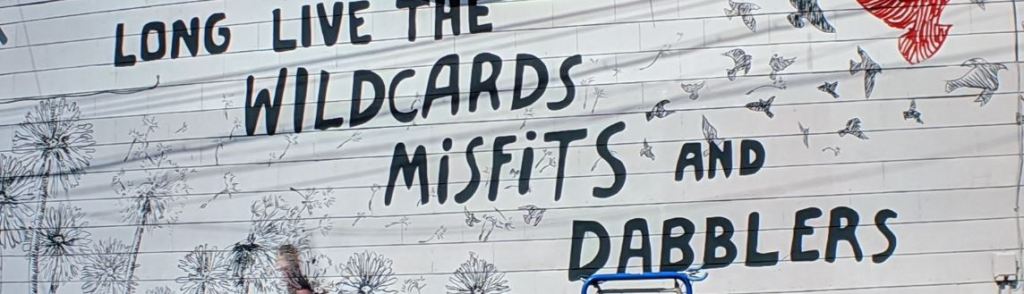 LONG LIVE THE
WILDCARDS
MiSFiTS AND
DABBLERS